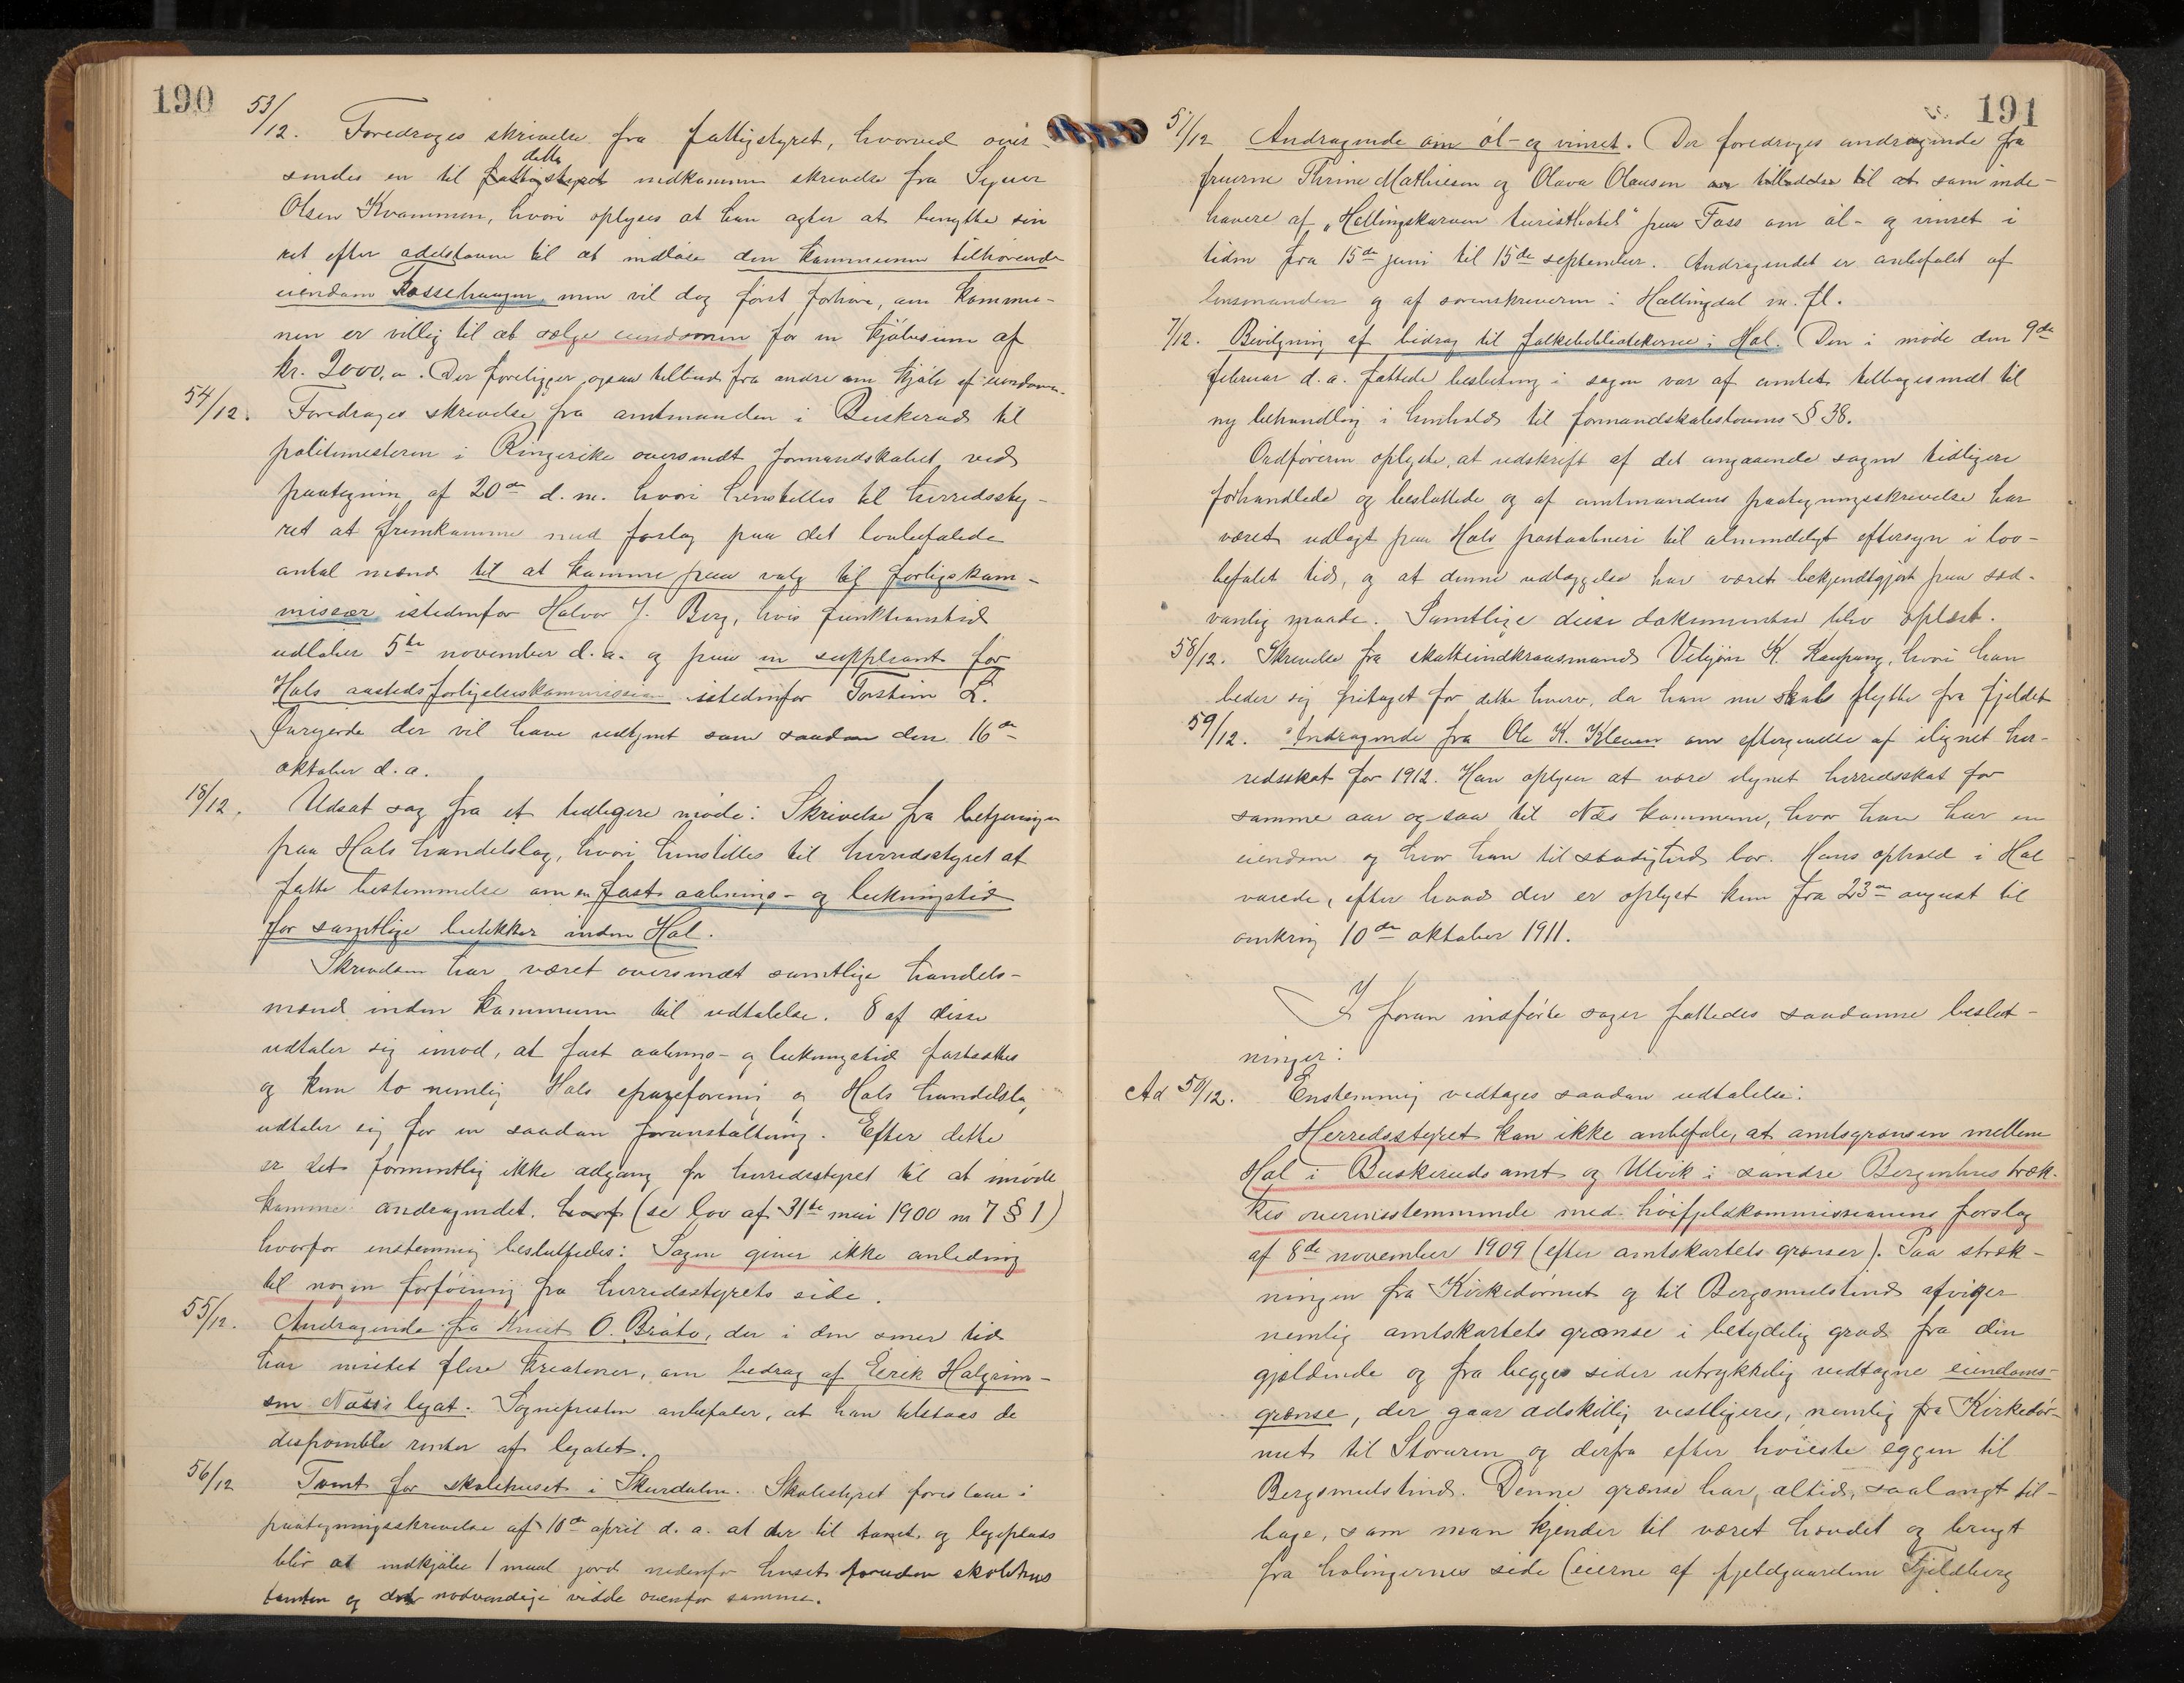 190
53/12. Foredroges skrivelse fra fattigstyret, hvorved over-
sendes en til dette indkommen skrivelse fra Syver
Olsen Kvammen, hvori oplyses at han agter at benytte sin
ret efter odelsloven til at indløse den kommunen tilhørende
eiendom Fossehaugen, men vil dog først forhøre, om kommu-
nen er villig til at sælge eiendommen for en kjøbesum af
kr. 2000,00. Der foreligger ogsaa tilbud fra andre om kjøb af eiendommen.
54/12. Foredroges skrivelse fra amtmanden i Buskerud til
politimesteren i Ringerike oversendt formandskabet ved
paategning af 20de d.m. hvori henstilles til herredssty-
ret at fremkomme med forslag paa det lovbefalede
antal mænd til at komme paa valg til forligskom-
missær istedenfor Halvor J. Berg, hvis funktionstid
udløber 5te november d.a. og paa en suppleant for
Hols aastedsforligelseskommission istedenfor Torstein L.
Øvregjerde der vil have udtjent som saadan den 16de
oktober d.a.
18/12. Udsat sag fra et tidligere møde: Skrivelse fra betjeningen
paa Hols handelslag, hvori henstilles til herredsstyret at
fatte bestemmelse om en fast aabnings- og lukningstid
for samtlige butikker inden Hol.
Skrivelsen har været oversendt samtlige handels-
mænd inden kommunen til udtalelse. 8 af disse
udtaler sig imod, at fast aabnings- og lukningstid fastsættes
og kun to nemlig Hols spareforening og Hols handelslag
udtaler sig for en saadan foranstaltning. Efter dette
er det formentlig ikke adgang for herredsstyret til at imøde
komme andragendet. (se lov af 31te mai 1900 nr 7 § 1)
hvorfor enstemmig besluttedes: Sagen giver ikke anledning
til nogen forføining fra herredsstyrets side.
55/12. Andragende fra Knut O. Bråto, der i den senere tid
har mistet flere kreaturer, om bidrag af Eirik Halgrim-
sen Næss's legat. Sognepresten anbefaler, at han tilstaaes de
disponible renter af legatet.
56/12 Tomt for skolehuset i Skurdalen. Skolestyret foreslaar i
paategningsskrivelse af 10de april d.a. at der til tomt og legeplads
blir at indkjøbe 1 maal jord nedenfor huset foruden skolehus
tomten og den nødvendige vidde ovenfor samme.
191
57/12 Andragende om øl- og vinret. Der foredroges andragende fra
fruerne Thrine Mathiesen og Olava Olausen til at som inde-
havere af "Hallingskarven turisthotel" paa Taos om øl- og vinret i
tiden fra 15de juni til 15de september. Andragendet er anbefalet af
lensmanden og af sorenskriveren i Hallingdal m.fl.
7/12. Bevilgning af bidrag til folkebibliotekerne i Hol. Den i møde den 9de
februar d.a. fattede beslutning i sagen var af amtet tilbagesendt til
ny behandling i henhold til formandskabslovens § 38.
Ordføreren oplyste, at udskrift af det angaaende sagen tidligere
forhandlede og besluttede og af amtmandens paategningsskrivelse har
været udlagt paa Hols postaabneri til almindeligt eftersyn i lov-
befalet tid, og at denne udlæggelse har været bekjendtgjort paa sæd-
vanlig maade. Samtlige disse dokumenter blev oplæst.
58/12. Skrivelse fra skatteindkræversmand Vebjørn K. Kaupang, hvori han
beder sig fritaget for dette hverv, da han nu skal flytte fra fjeldet
59/12. Andragende fra Ole K. Kleven om eftergivelse af ilignet her-
redsskat for 1912. Han oplyser at være ilignet herredsskat for
samme aar ogsaa til Næs kommune, hvor han har en
eiendom og hvor han til stadighed bor. Hans ophold i Hol
varede, efter hvad der er oplyst kun fra 23de august til
omkring 10de oktober 1911.
I foran indførte sager fattedes saadanne beslut-
ninger:
Ad 50/12. Enstemmig vedtages saadan udtalelse:
Herredsstyret kan ikke anbefale, at amtsgrænsen mellem
Hol i Buskeruds amt og Ulvik i søndre Bergenhus træk-
kes overensstemmende med høifjeldskommissionens forslag
af 8de november 1909 (efter amtskartets grænser). Paa stræk-
ningen fra Kirkedørnut og til Bergsmulstind afviger
nemlig amtskartets grænse i betydelig grad fra den
gjældende og fra begges sider utrykkelig vedtagne eiendoms-
grænse, der gaar adskillig vestligere, nemlig fra Kirkedør-
nut til Storuren og derfra efter høieste eggen til
Bergsmulstind. Denne grænse har, altid, saalangt til-
bage, som man kjender til været hævdet og brugt
fra holingernes side (eierne af fjeldgaardene Fjeldberg